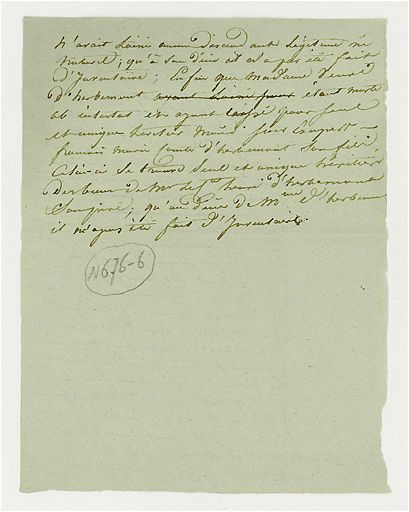 n'avait laissé aucun descendant légitime ni
naturel; qu'à son décès il n'a pas été fait
d'Inventaire; Enfin que Madame Veuve
d'herbemont ayant laissé pour étant morte
ab intestat et ayant laissé pour seul
et unique héritier
françois marie comte d'herbemont son fils,
Celui-ci se trouve seul et unique héritier
de Mr henri d'herbemont
Son père; qu'au décès de Mme d'herbemont
il n'a pas été fait d'Inventaire.
N676-6